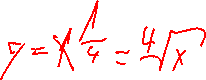 y = x^{1/4} = \sqrt[4]{x}